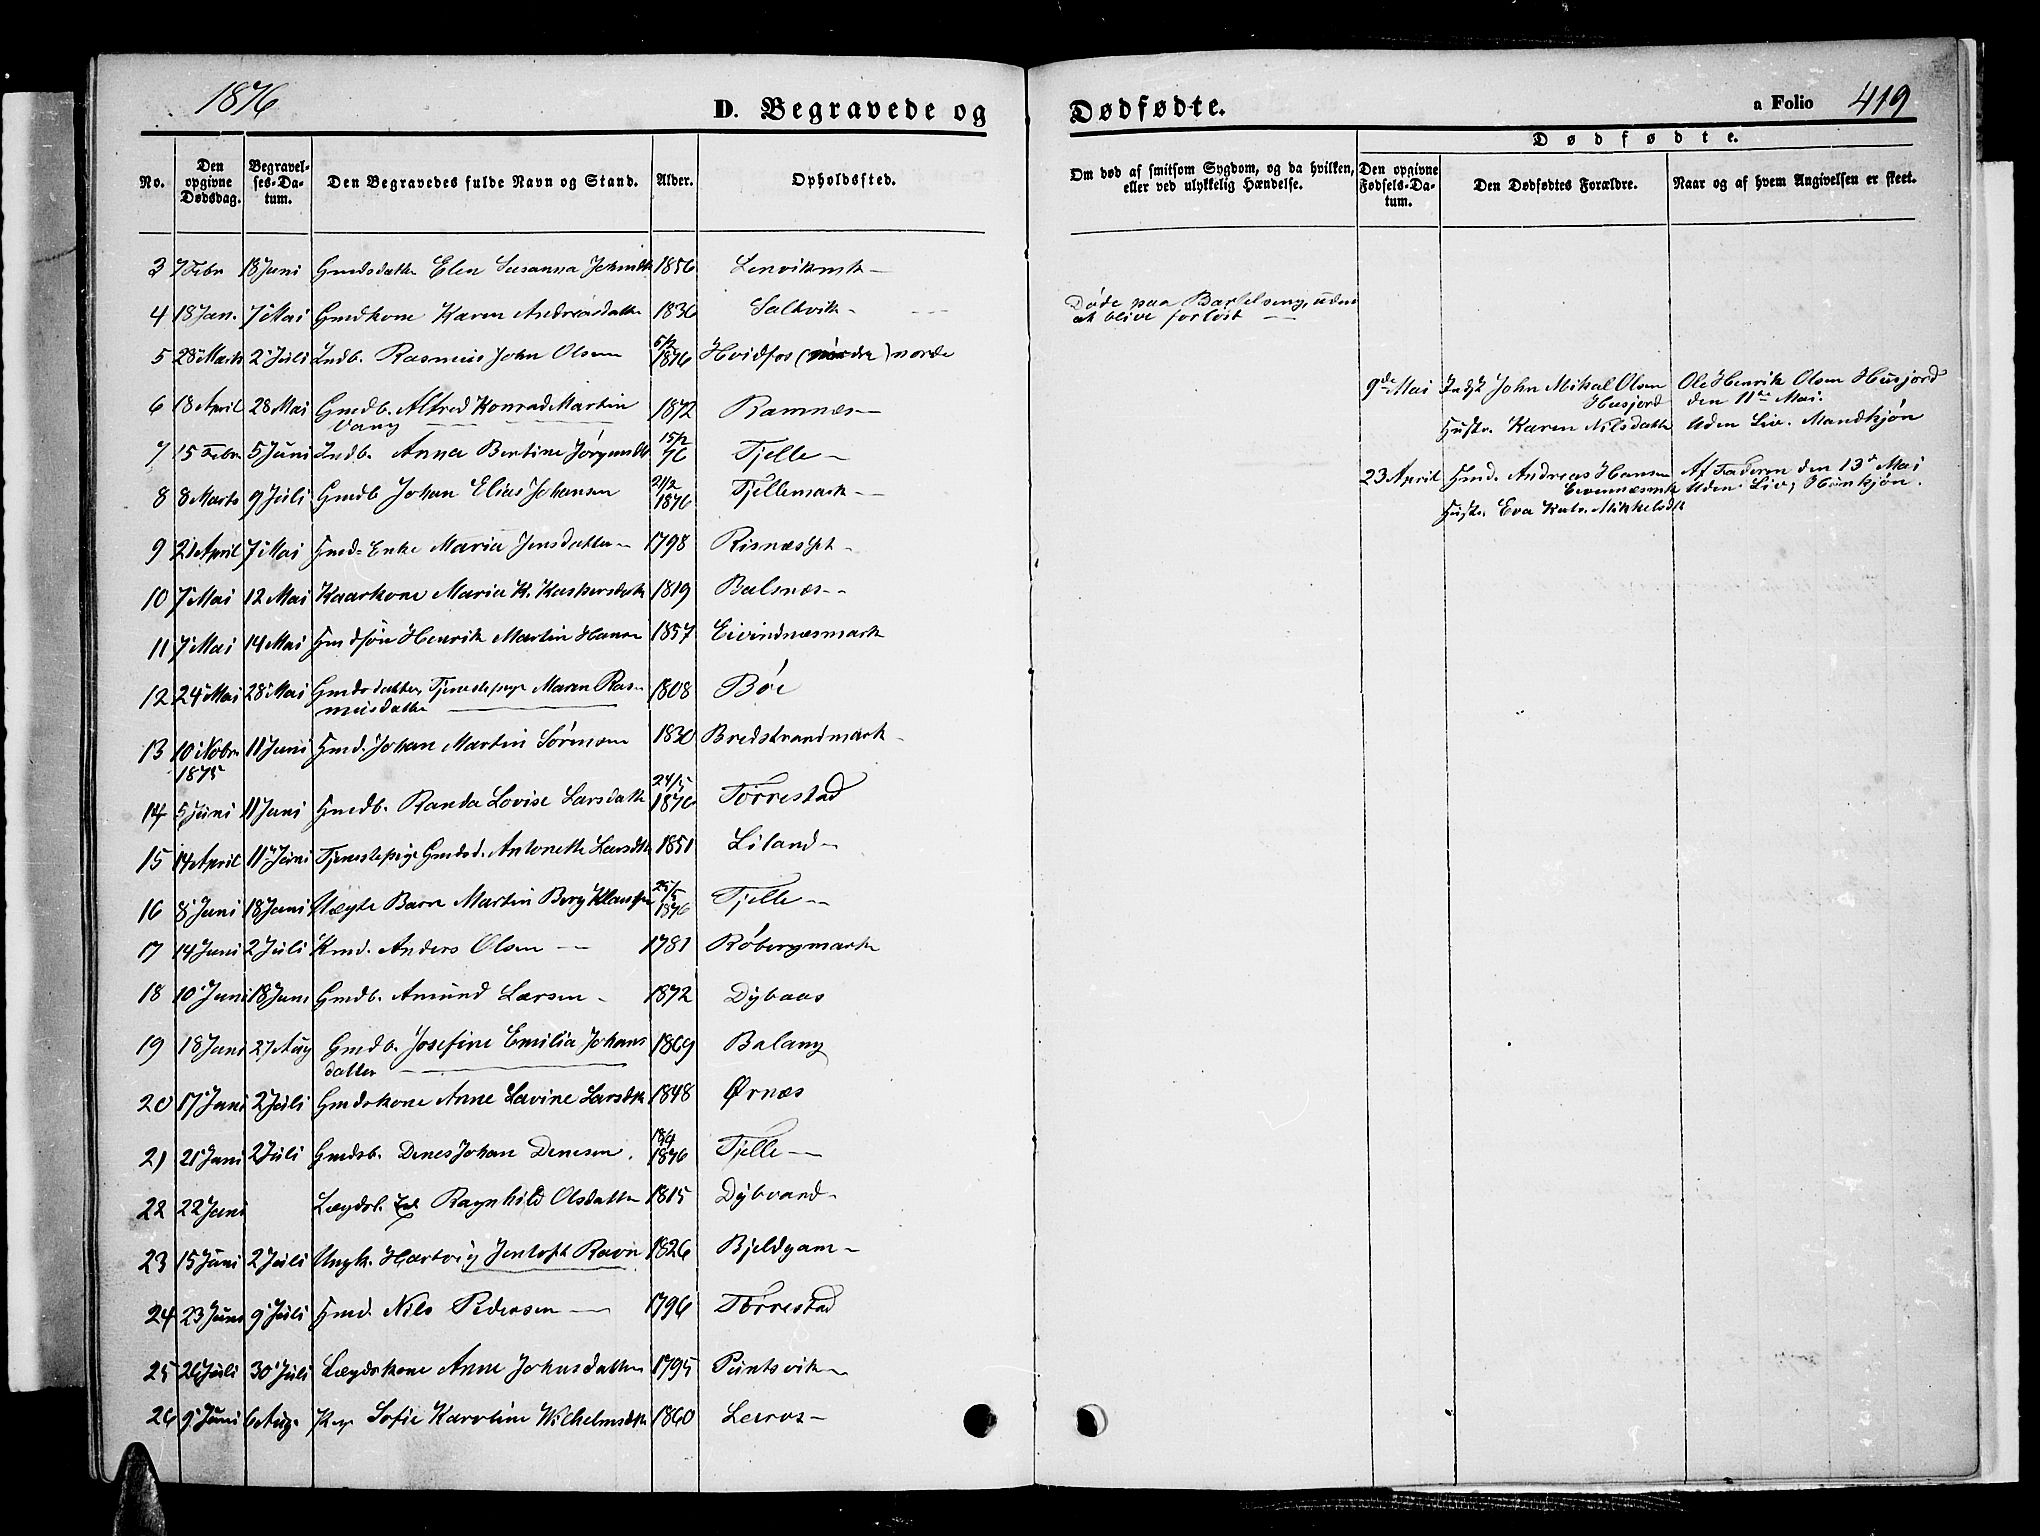 1876
D. Begravede og
Dødfødte.
a Folio 419
No.
Den opgivne Dødsdag.
Begravel-ses-Da-tum.
Den Begravedes fulde Navn og Stand.
Alder.
Opholdssted.
Om død af smitsom Sygdom, og da hvilken, eller ved ulykkelig Hændelse.
Dødfødte.
Den opgivne Fødsels-Da-tum.
Den Dødfødtes Forældre.
Naar og af hvem Angivelsen er skeet.
3 7 Febr 18 Juni Gmdsdatter Elen Susanna 1856 Lenvikmk
4 18 Jan. 7 Mai Gmdkone Karen Andreasdatter 1836 Saltvik
Døde paa Barselseng, uden
at blive forløst
5 28 Marts 2 Juli Indb. Rasmus John Olsen 6/2 1876 Hvidfos (nordre) nordre
6 18 April 28 Mai Gmdb. Alfred Konrad Martin 1872 Ramnæs
Vang
7 15 Febr 5 Juni Indb. Anna Bertine 15/2 76 Tjelle
8 8 Marts 9 Juli Gmdb Johan Elias Johansen 21/2 1876 Tjellemark
9de Mai Indst John Mikal Olsen Ole Henrik Olsen Husjord
Husjord den 11te Mai.
Hustr. Karen Nilsdatter Uden Liv. Mandkjøn
23 April Gmd. Andreas Hansen Af Faderen den 13de Mai
Eivennæsmk Uden Liv, Hunkjøn.
Hustr. Eva Katr. Mikkelsdtr
9 21 April 7 Mai Gmd. Enke Maria Jensdatter 1798 Risnæs
10 7 Mai 12 Mai Kaarkone Maria K. Kaspersdatter 1819 Balsnæs
11 7 Mai 14 Mai Gmdsøn Henrik Martin Hansen 1857 Eivindnæsmark
12 24 Mai 28 Mai Gmdsdatter, Tjenestepige Maren Ras-1808 Bøe
musdatter
13 10 Nobr 11 Juni Gmd. Johan Martin Sørensen 1830 Bredstrandmark
1875
14 5 Juni 11 Juni Gmdb. Randa Lovise Larsdatter 24/5 1876 Torrestad
15 14 April 11 Juni Tjenestepige Gmdsd. Antonette Larsdtr 1851 Liland
16 8 Juni 18 Juni Uægte Barn Martin Berg Klausen 25/5 1876 Tjelle
17 14 Juni 2 Juli Kmd. Anders Olsen 1781 Røbergmark
18 10 Juni 18 Juni Gmdb. Amund Larsen 1872 Dybaas
19 18 Juni 27 Aug Gmdb. Josefine Emilia Johans 1869 Balang
datter
20 17 Juni 2 Juli Gmdskone Anne Lavine Larsdtr 1848 Ørnæs
21 21 Juni 2 Juli Gmdsb. Denes Johan Denesen. 18/4 1876 Tjelle
22 22 Juni Lægdsl. Ragnhild Olsdatter 1815 Dybvand
23 15 Juni 2 Juli Ungk. Hartvig Jentoft Ravn 1826 Bjeldgam
24 23 Juni 9 Juli Gmd. Nils Pedersen 1796 Torrestad
25 26 Juli 30 Juli Lægdskone Anne Johnsdatter 1795 Puntsvik
26 9 Juni 6 Aug. Sofie Karoline Wilhelmsdtr 1860 Leiros